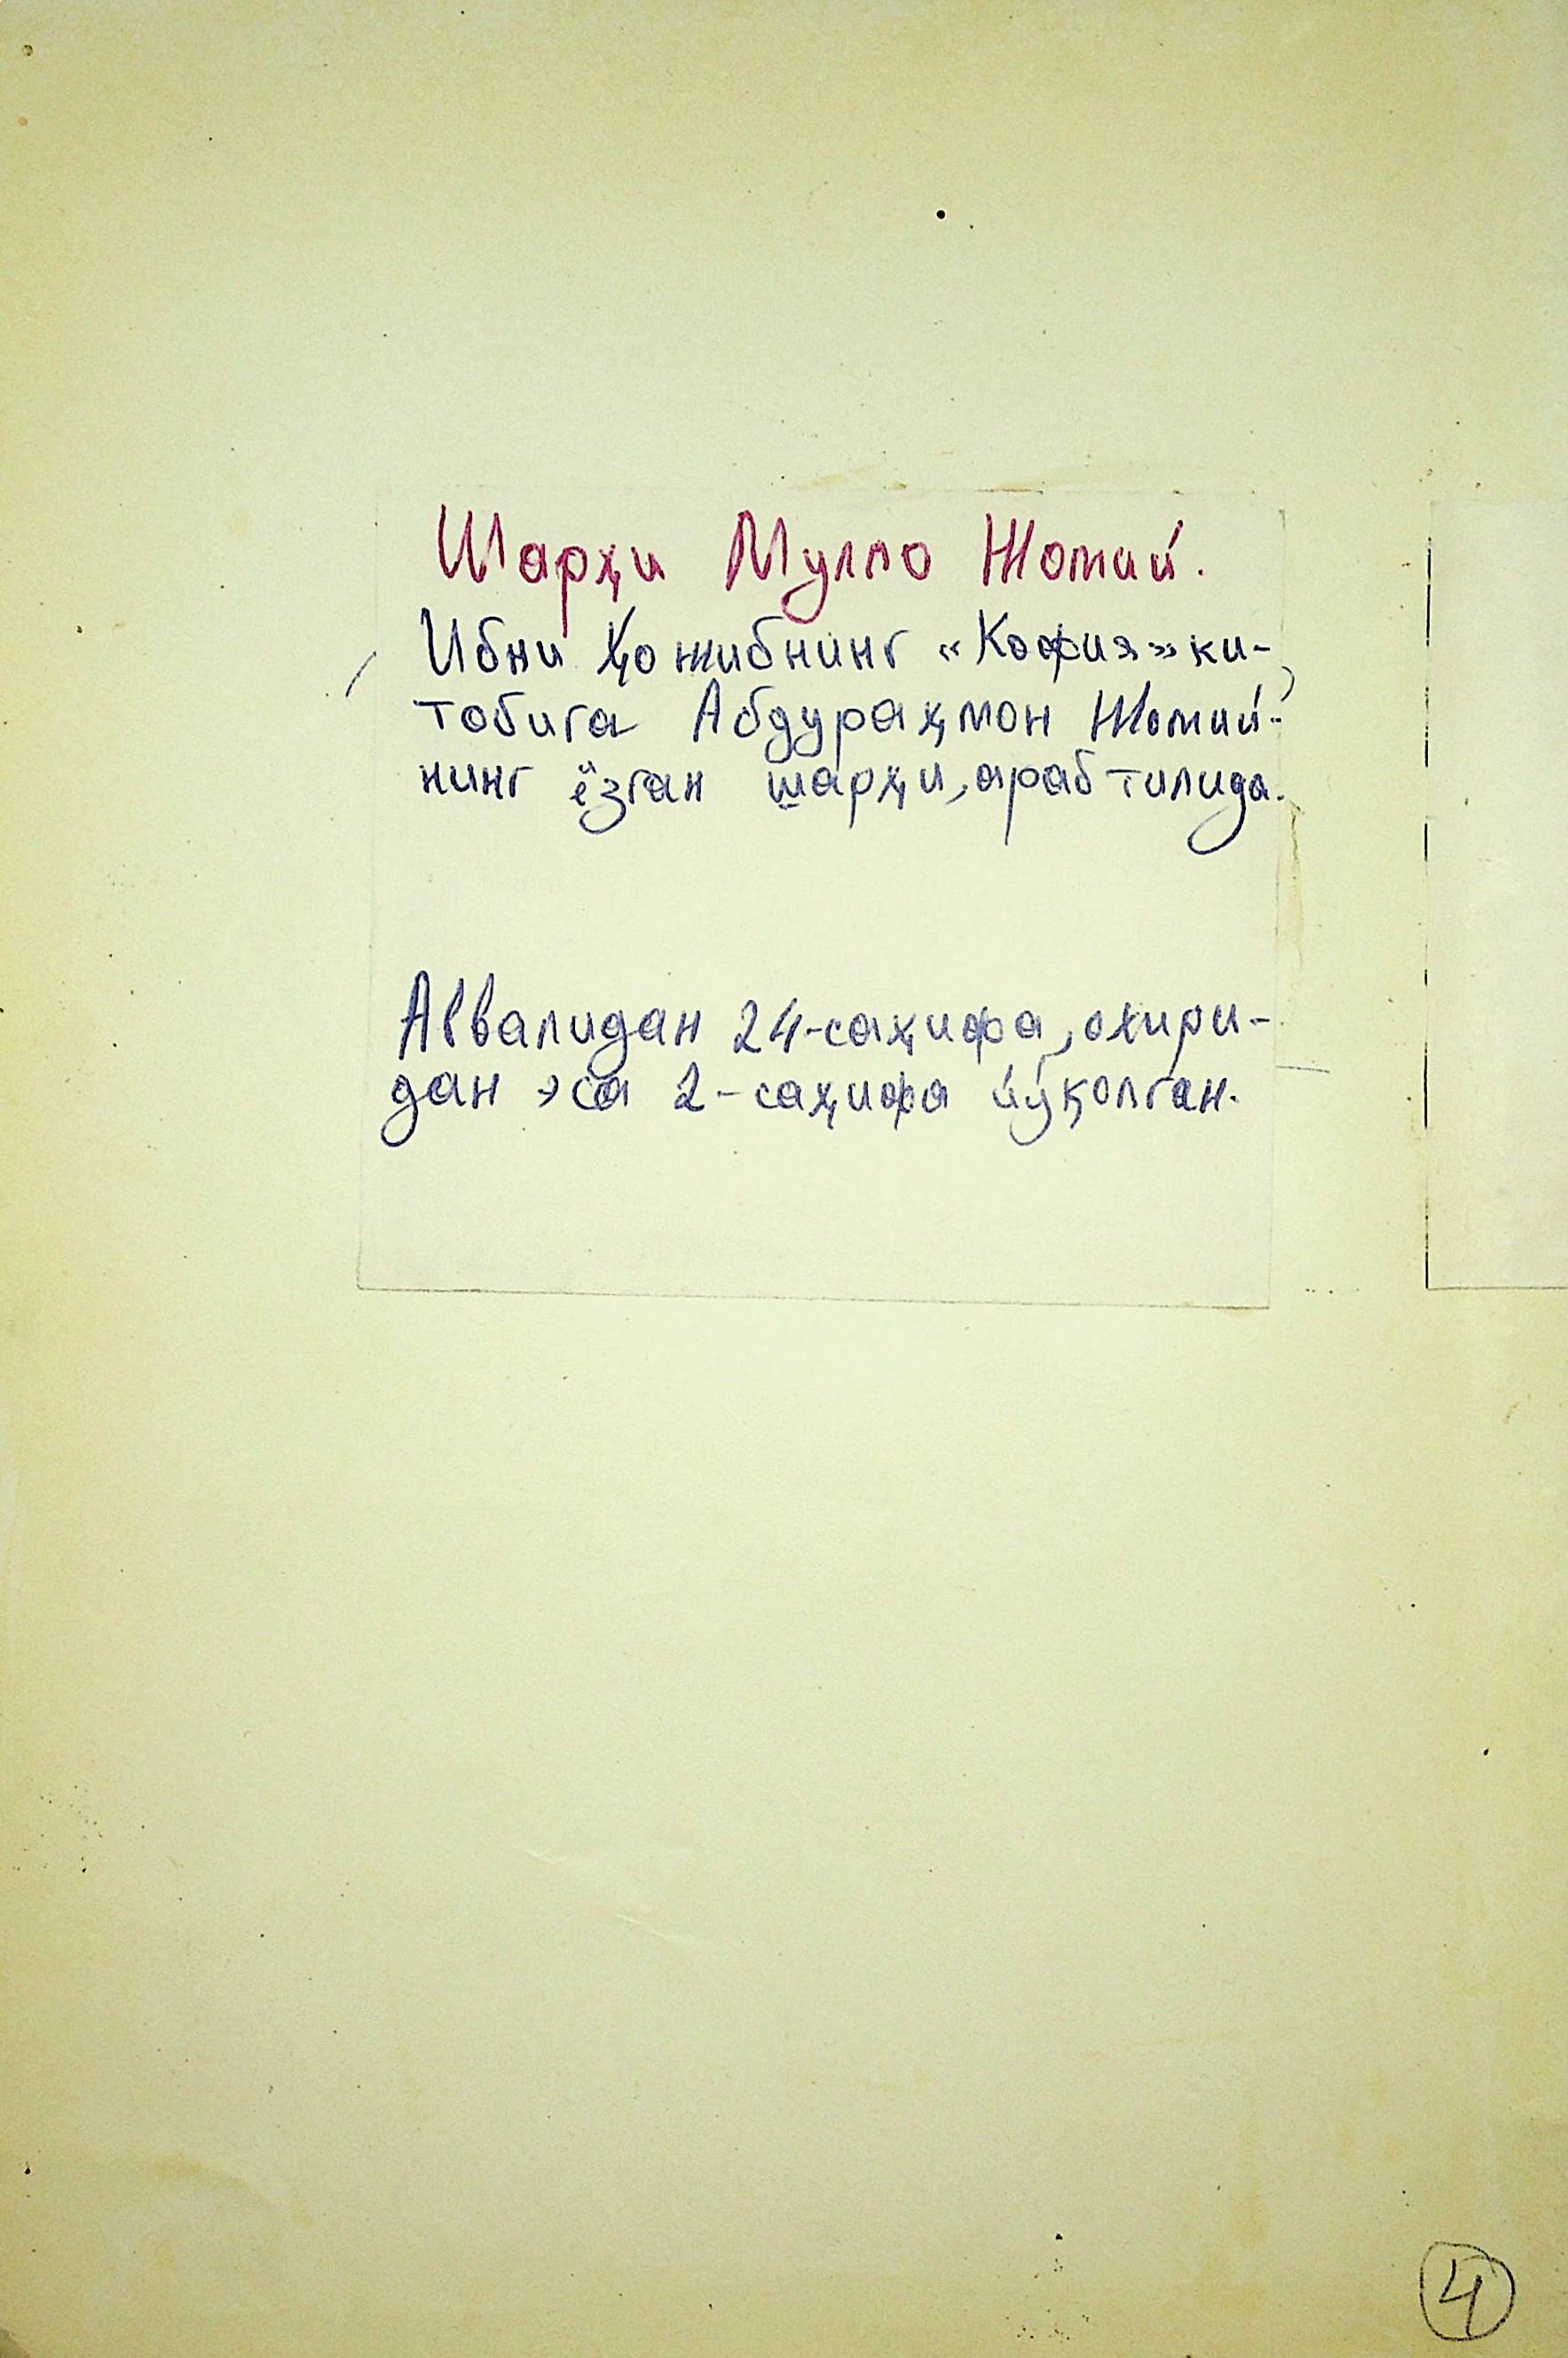 Шарҳи Мулло Жомий.
Ибни Ҳожибнинг «Кофия» ки-
тобига Абдураҳмон Жомий-
нинг ёзган шарҳи, араб тилида.
Аввалидан 24-саҳифа, охири-
дан эса 2-саҳифа йўқолган.
4